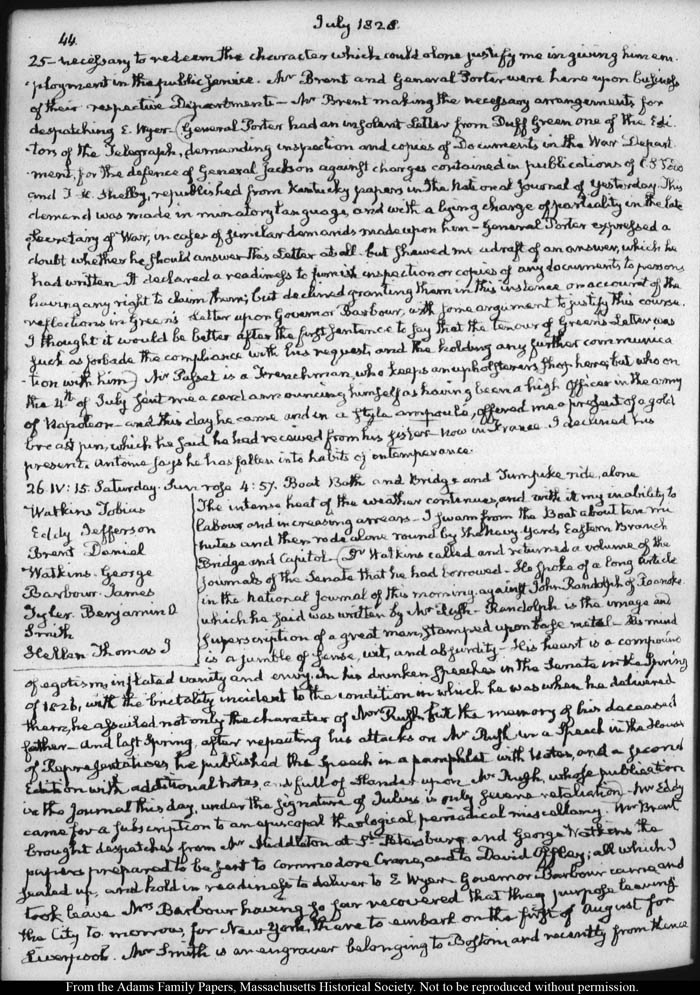 July 1828.
44.
25 – necessary to redeem the character which could alone justify me in giving him em-
ployment in the public service. Mr Brent and General Porter were here upon business
of their respective Departments – Mr Brent making the necessary arrangements for
despatching E. Wyer – General Porter had an insolent Letter from Duff Green one of the Edi-
tors of the Telegraph, demanding inspection and copies of Documents in the War Depart-
ment, for the defence of General Jackson against charges contained in publications of
and I. Shelby, republished from Kentucky papers in the National Journal of yesterday. This
demand was made in minatory language, and with a lying charge of partiality in the late
Secretary of War, in cases of similar demands made upon him – General Porter expressed a
doubt whether he should answer this Letter at all but shewed me a draft of an answer, which he
had written – It declared a readiness to furnish inspection or copies of any documents to persons
having any right to claim them; but declined granting them in this instance on account of the
reflections in Green's Letter upon Governor Barbour, with some argument to justify this course.
I thought it would be better after the first sentence to say that the tenour of Green's Letter was
such as forbade the compliance with his request, and the holding any further communica-
tion with him) Mr is a Frenchman, who keeps an upholsterer's shop here; but who on
the 4th of July sent me a card announcing himself as having been a high Officer in the army
of Napoleon – and this day he came and in a style ampoulé, offered me a present of a gold
breast pin, which he said he had received from his sister now in France. I declined his
present. Antoine says he has fallen into habits of intemperance.
26 IV: 15. Saturday. Sun rose 4:57. Boat Bath and Bridge and Turnpike ride, alone
Watkins Tobias
Eddy Jefferson
Brent Daniel
Watkins. George
Barbour. James
Tyler. Benjamin O
Smith
Hellen Thomas J
The intense heat of the weather continues, and with it my inability to
labour and increasing arrears – I swam from the Boat about ten mi-
nutes and then rode alone round by the Navy Yard, Eastern Branch
Bridge and Capitol – Dr Watkins called and returned a volume of the
Journals of the Senate that he had borrowed – He spoke of a long article
in the National Journal of this morning against John Randolph of Roanoke
which he said was written by Mr Rush – Randolph is the image and
superscription of a great man, stamped upon base metal – His mind
is a jumble of sense, wit, and absurdity – His heart is a compound
of egotism, inflated vanity and envy. In his drunken speeches in the Senate in the Spring
of 1826, with the brutality incident to the condition in which he was when he delivered
them, he assailed not only the character of Mr Rush but the memory of his deceased
father – and last Spring, after repeating his attacks on Mr Rush in a Speech in the House
of Representatives, he published the Speech in a pamphlet with Notes, and a second
Edition with additional notes, and full of slander upon Mr Rush, whose publication
in the Journal this day, under the signature of Julius is only severe retaliation – Mr Eddy
came for a subscription to an episcopal theological periodical miscellany. Mr Brent
brought despatches from Mr Middleton at St. Petersburg and George Watkins the
papers prepared to be sent to commodore Crane, and to David Offley; all which I
sealed up, and hold in readiness to deliver to E Wyer – Governor Barbour came and
took leave Mrs Barbour having so far recovered that they purpose leaving
the City to-morrow, for New York, there to embark on the first of August for
Liverpool. Mr Smith is an engraver belonging to Boston and recently from thence
From the Adams Family Papers, Massachusetts Historical Society. Not to be reproduced without permission.